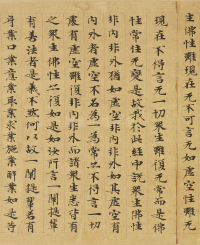 主佛性雖現在无不可言无如虛空性雖无
現在不得言无一切衆生雖復无常而是佛
性常住无變是故我於此經中說衆生佛性
非內非外猶如虛空非內非外如其虛空有
內外者虛空不名為一為常亦不得言一切
處有虛空雖復非內非外而諸衆生悉皆有
之衆生佛性亦復如是如汝所言一闡提輩
有善法者是義不然何以故一闡提輩若有
身業口業意業取業求業施業解業如是等